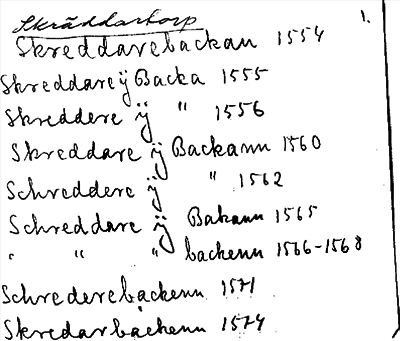 Skräddartorp
1.
Skreddarebackan 1554
Skreddare ÿ Backa 1555
Skreddere ÿ " 1556
Skreddare ÿ Backann 1560
Schreddere ÿ " 1562
Schreddare ÿ Bakann 1565
" " " backenn 1566-1568
Schrederebackenn 1571
Skredarbackenn 1574